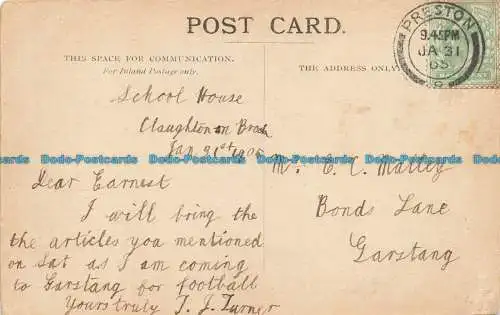 POST CARD.
THIS SPACE FOR COMMUNICATION.
For Inland Postage only.
THE ADDRESS ONLY
PRESTON
9.45PM
JA 31
05
School House
Claughton on Brock
Jan 31st 1905
Dear Earnest
I will bring the
the articles you mentioned
on Sat as I am coming
to Garstang for football
Yours truly T. J. Turner
Mr. E. C. Malley
Bonds Lane
Garstang
Dodo-Postcards Dodo-Postcards Dodo-Postcards Dodo-Postcards Dodo-Postcards